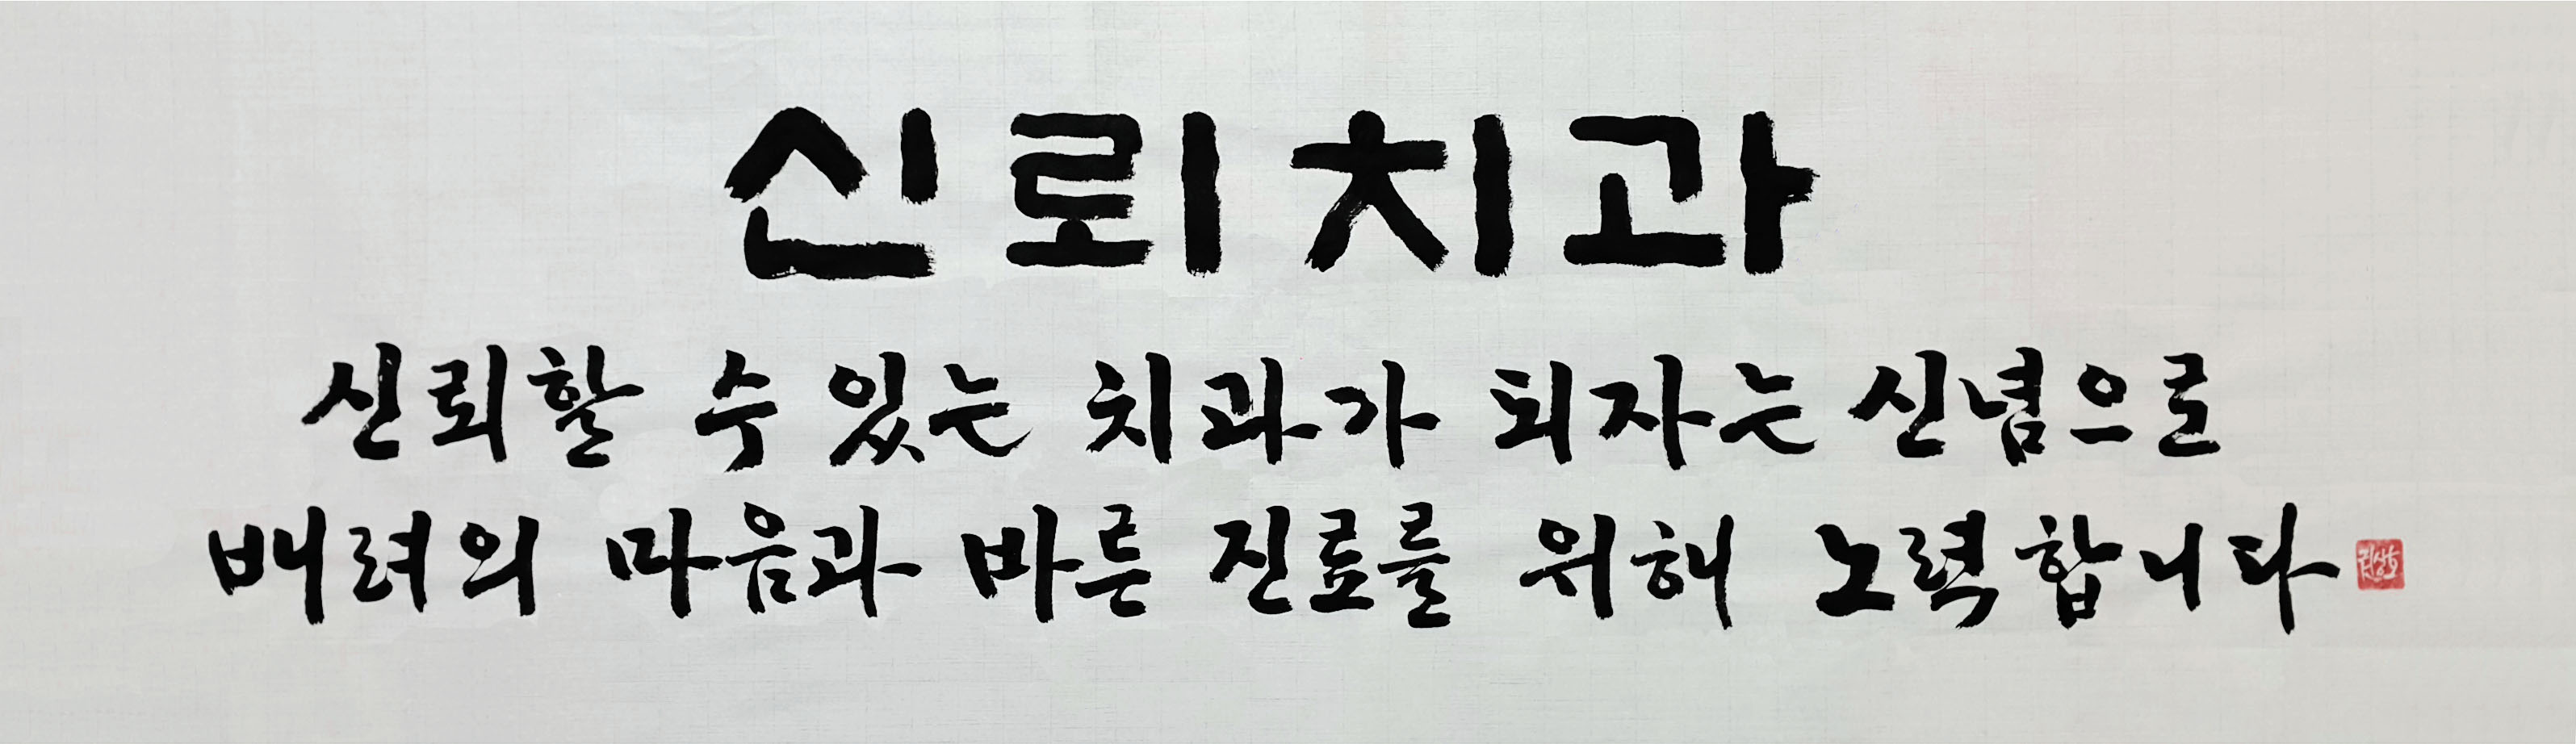 신뢰치과
신뢰할 수 있는 치과가 되자는 신념으로
배려의 마음과 바른 진료를 위해 노력합니다